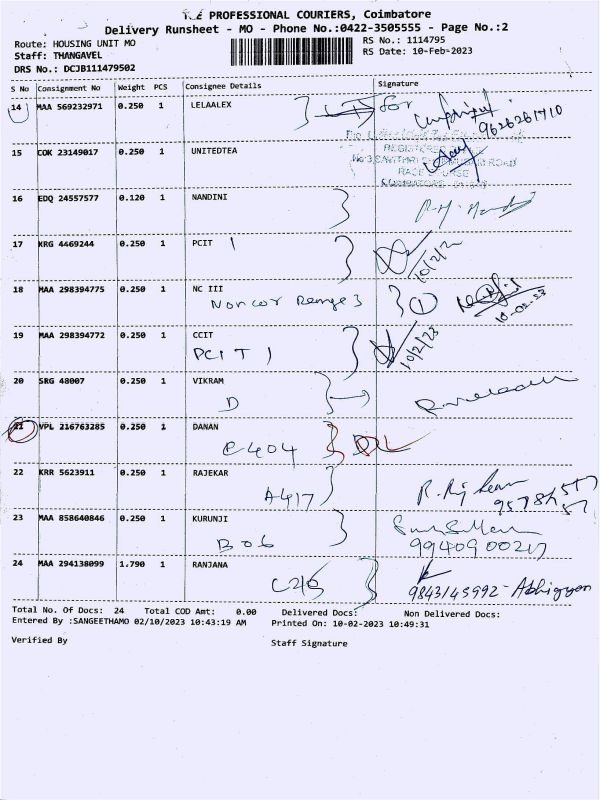 THE PROFESSIONAL COURIERS, Coimbatore
Delivery Runsheet - MO - Phone No.:0422-3505555 - Page No.:2
Route: HOUSING UNIT MO
Staff: THANGAVEL
DRS No.: DCJB111479502
RS No.: 1114795
RS Date: 10-Feb-2023
S No Consignment No Weight PCS Consignee Details Signature
14 MAA 569232971 0.250 1 LELAALEX for
9626261710
15 COK 23149017 0.250 1 UNITEDTEA
REGISTERED
RACE COURSE
16 EDQ 24557577 0.120 1 NANDINI
17 KRG 4469244 0.250 1 PCIT 1
10/2/2
18 MAA 298394775 0.250 1 NC III
Noncor Range 3 1
10-02-23
19 MAA 298394772 0.250 1 CCIT
PCIT 1 10/2/23
20 SRG 48007 0.250 1 VIKRAM
D
21 VPL 216763285 0.250 1 DANAN
C404 DL
22 KRR 5623911 0.250 1 RAJEKAR
A417
23 MAA 858640846 0.250 1 KURUNJI
B06 9940900217
24 MAA 294138099 1.790 1 RANJANA
C26 9843145992-Abhigyan
Total No. Of Docs: 24 Total COD Amt: 0.00 Delivered Docs: Non Delivered Docs:
Entered By :SANGEETHAMO 02/10/2023 10:43:19 AM Printed On: 10-02-2023 10:49:31
Verified By Staff Signature